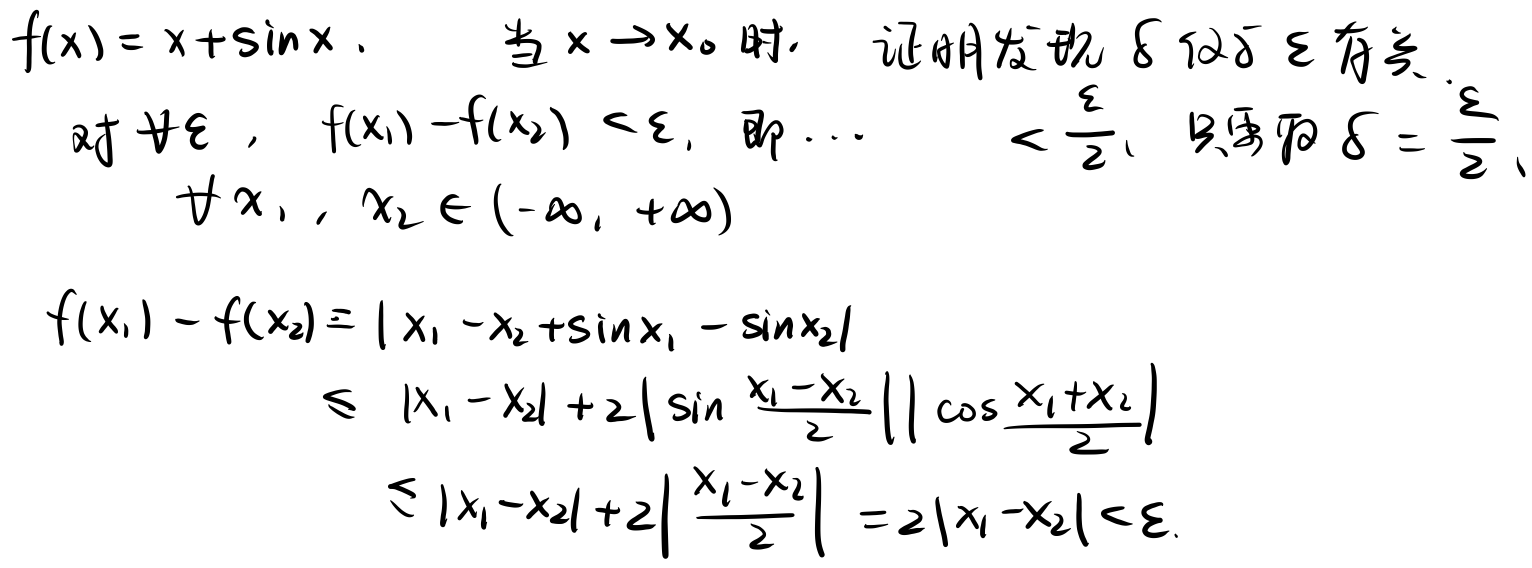 f(x) = x + sin x. 当 x → x₀ 时, 证明发现 δ 仅与 ε 有关.
对 ∀ε, f(x₁) - f(x₂) < ε, 即 ... < ε/2, 只需取 δ = ε/2,
∀ x₁, x₂ ∈ (-∞, +∞)
f(x₁) - f(x₂) = |x₁ - x₂ + sin x₁ - sin x₂|
≤ |x₁ - x₂| + 2|sin (x₁ - x₂)/2||cos (x₁ + x₂)/2|
≤ |x₁ - x₂| + 2|(x₁ - x₂)/2| = 2|x₁ - x₂| < ε.